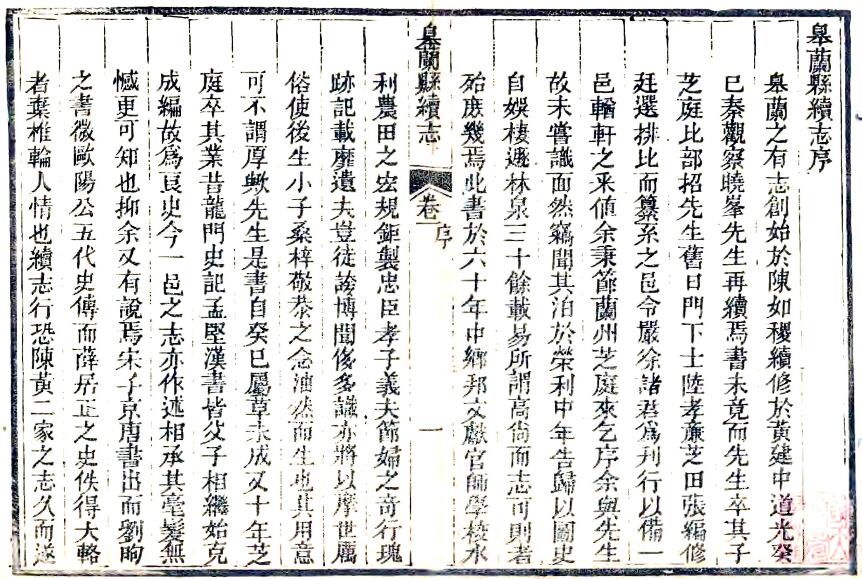 皋蘭縣續志序
皋蘭之有志創始於陳如稷續修於黃建中道光癸
巳秦觀察曉峯先生再續焉書未竟而先生卒其子
芝庭比部招先生舊日門下士陸孝亷芝田張編修
廷選排比而纂系之邑令嚴徐諸君爲刊行以備一
邑輶軒之釆値余秉節蘭州芝庭來乞序余與先生
故未嘗識面然竊聞其泊於榮利中年告歸以圖史
自娛棲遯林泉三十餘載易所謂高尙而志可則者
殆庶幾焉此書於六十年中鄉邦文獻官師學校水
皋蘭縣續志
卷一
序
一
利農田之宏規鉅製忠臣孝子義夫節婦之奇行瑰
跡記載靡遺夫豈徒誇博聞侈多識亦將以摩世厲
俗使後生小子桑梓敬恭之念油然而生也其用意
可不謂厚歟先生是書自癸巳屬草未成又十年芝
庭卒其業昔龍門史記孟堅漢書皆父子相繼始克
成編故爲良史今一邑之志亦作述相承其毫髮無
憾更可知也抑余又有說焉宋子京唐書出而劉昫
之書微歐陽公五代史傳而薛居正之史佚得大輅
者棄椎輪人情也續志行恐陳黃二家之志久而遂